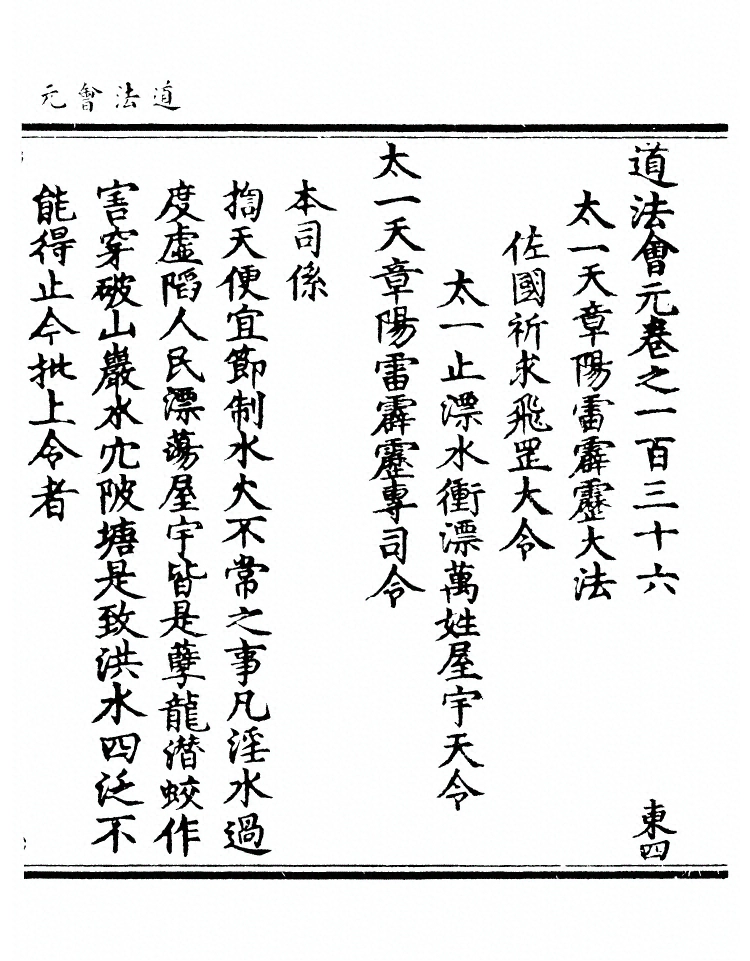 道法會元
道法會元卷之一百三十六
東四
太一天章陽雷霹靂大法
佐國祈求飛罡大令
太一止漂水衝漂萬姓屋宇天令
太一天章陽雷霹靂專司令
本司係
掏天便宜節制水火不常之事凡淫水過
度虛䧟人民漂蕩屋宇皆是孽龍潛蛟作
害穿破山巖水穴陂塘是致洪水四泛不
能得止今批上令者